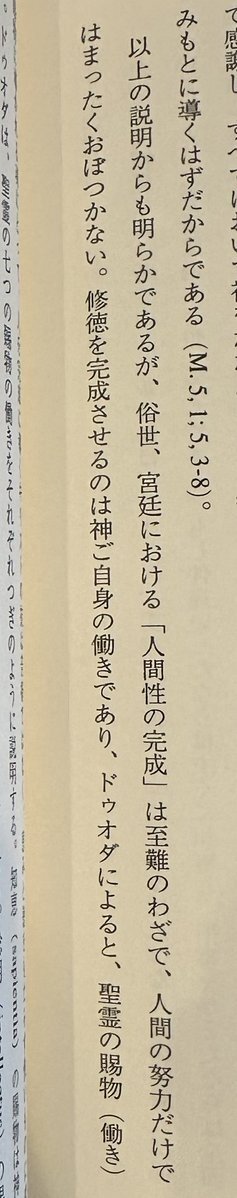 て感謝し、すべてにおいて神を
みもとに導くはずだからである（M. 5, 1; 5, 3-8)。
以上の説明からも明らかであるが、俗世、宮廷における「人間性の完成」は至難のわざで、人間の努力だけで
はまったくおぼつかない。修徳を完成させるのは神ご自身の働きであり、ドゥオダによると、聖霊の賜物（働き）
。ドゥオダは、聖霊の七つの賜物の働きをそれぞれつぎのように説明する。知恵（sapientia）の賜物は